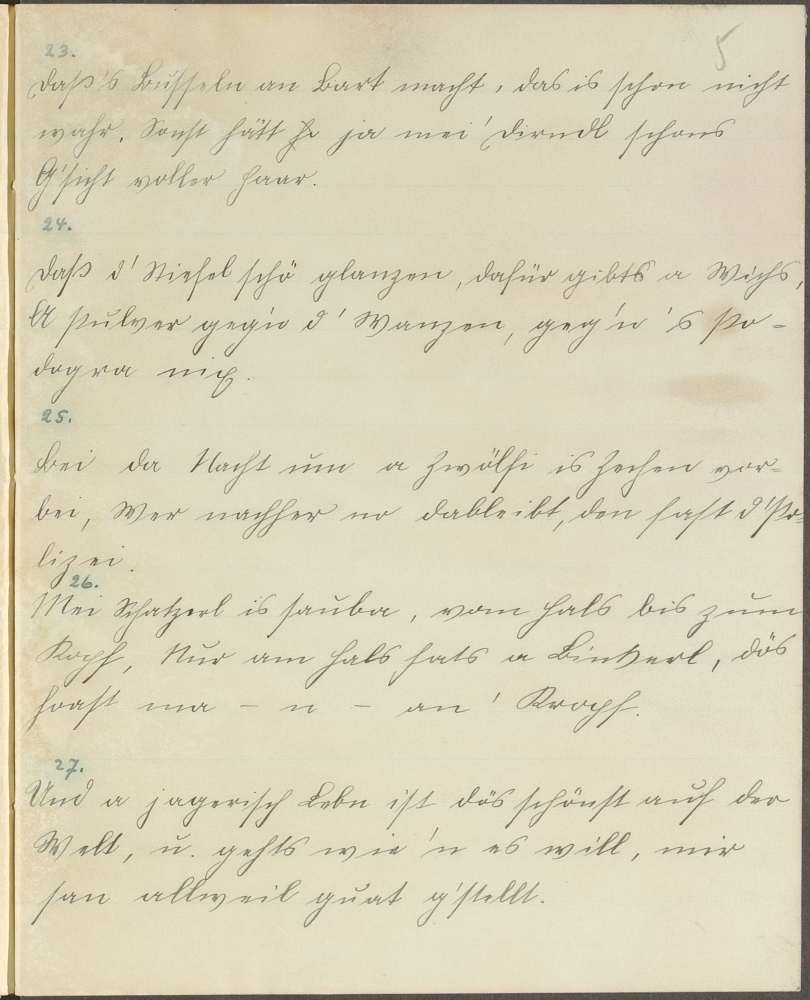 5
23.
Daß's Busseln an Bart macht, das is schon nicht
wahr. Sonst hätt ja mei' Dirndl schons
G'sicht voller Haar.
24.
Daß d' Stiefel schö glanzen, dafür gibts a Wichs,
A Pulver geg'n d' Wanzen, geg'n 's Po-
dogra nix.
25.
Bei da Nacht um a Zwölfi is Zechen vor-
bei, Wer nachher no dableibt, den hast d'Po-
lizei.
26.
Mei Schatzerl is sauba, vom Hals bis zum
Kopf, Nur am Hals hats a Binkerl, dös
hoast ma - n - an' Kropf.
27.
Und a jagerisch Lebn ist dös schönst auf der
Welt, u. gehts wie 'n es will, mir
san allweil guat g'stellt.